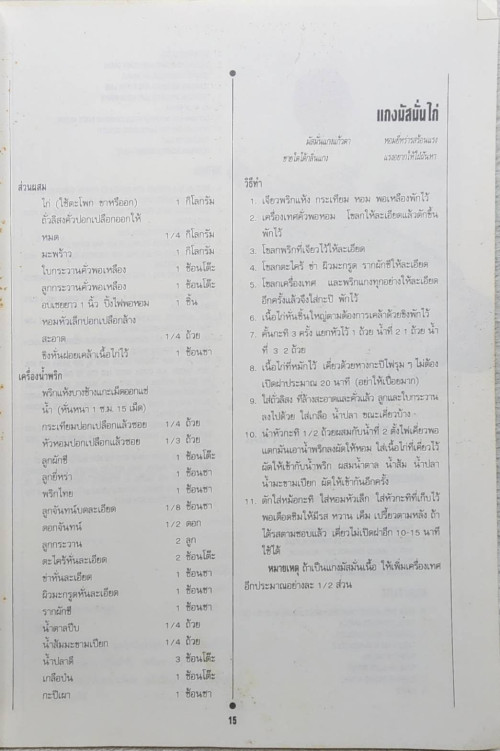 แกงมัสมั่นไก่
มัสมั่นแกงแก้วตา หอมยี่หร่ารสร้อนแรง
ชายใดได้กลืนแกง แรงอยากให้ใฝ่ฝันหา
ส่วนผสม
ไก่ (ใช้ตะโพก ขาหรืออก) 1 กิโลกรัม
ถั่วลิสงคั่วปอกเปลือกออกให้
หมด 1/4 กิโลกรัม
มะพร้าว 1 กิโลกรัม
ใบกระวานคั่วพอเหลือง 1 ช้อนโต๊ะ
ลูกกระวานคั่วพอเหลือง 1 ช้อนโต๊ะ
อบเชยยาว 1 นิ้ว ปิ้งไฟพอหอม 1 ชิ้น
หอมหัวเล็กปอกเปลือกล้าง
สะอาด 1/4 ถ้วย
ขิงหั่นฝอยเคล้าเนื้อไก่ไว้ 1 ช้อนชา
เครื่องน้ำพริก
พริกแห้งบางช้างแกะเม็ดออกแช่
น้ำ (หั่นหนา 1 ซ.ม. 15 เม็ด)
กระเทียมปอกเปลือกแล้วซอย 1/4 ถ้วย
หัวหอมปอกเปลือกแล้วซอย 1/3 ถ้วย
ลูกผักชี 1 ช้อนโต๊ะ
ลูกยี่หร่า 1 ช้อนชา
พริกไทย 1 ช้อนชา
ลูกจันทน์บดละเอียด 1/8 ช้อนชา
ดอกจันทน์ 1/2 ดอก
ลูกกระวาน 2 ลูก
ตะไคร้หั่นละเอียด 2 ช้อนโต๊ะ
ข่าหั่นละเอียด 1 ช้อนชา
ผิวมะกรูดหั่นละเอียด 1 ช้อนชา
รากผักชี 1 ช้อนชา
น้ำตาลปีบ 1/4 ถ้วย
น้ำส้มมะขามเปียก 1/4 ถ้วย
น้ำปลาดี 3 ช้อนโต๊ะ
เกลือป่น 1 ช้อนโต๊ะ
กะปิเผา 1 ช้อนชา
วิธีทำ
1. เจียวพริกแห้ง กระเทียม หอม พอเหลืองพักไว้
2. เครื่องเทศคั่วพอหอม โขลกให้ละเอียดแล้วตักขึ้น
พักไว้
3. โขลกพริกที่เจียวไว้ให้ละเอียด
4. โขลกตะไคร้ ข่า ผิวมะกรูด รากผักชีให้ละเอียด
5. โขลกเครื่องเทศ และพริกแกงทุกอย่างให้ละเอียด
อีกครั้งแล้วจึงใส่กะปิ พักไว้
6. เนื้อไก่หั่นชิ้นใหญ่ตามต้องการเคล้าด้วยขิงพักไว้
7. คั้นกะทิ 3 ครั้ง แยกหัวไว้ 1 ถ้วย น้ำที่ 2 1 ถ้วย น้ำ
ที่ 3 2 ถ้วย
8. เนื้อไก่ที่หมักไว้ เคี่ยวด้วยหางกะทิไฟรุม ๆ ไม่ต้อง
เปิดฝาประมาณ 20 นาที (อย่าให้เปื่อยมาก)
9. ใส่ถั่วลิสง ที่ล้างสะอาดและคั่วแล้ว ลูกและใบกระวาน
ลงไปด้วย ใส่เกลือ น้ำปลา ขณะเคี่ยวบ้าง
10. นำหัวกะทิ 1/2 ถ้วยผสมกับน้ำที่ 2 ตั้งไฟเคี่ยวพอ
แตกมันเอาน้ำพริกลงผัดให้หอม ใส่เนื้อไก่ที่เคี่ยวไว้
ผัดให้เข้ากับน้ำพริก ผสมน้ำตาล น้ำส้ม น้ำปลา
น้ำมะขามเปียก ผัดให้เข้ากันอีกครั้ง
11. ตักใส่หม้อกะทิ ใส่หอมหัวเล็ก ใส่หัวกะทิที่เก็บไว้
พอเดือดชิมให้มีรส หวาน เค็ม เปรี้ยวตามหลัง ถ้า
ได้รสตามชอบแล้ว เคี่ยวไม่เปิดฝาอีก 10-15 นาที
ใช้ได้
หมายเหตุ ถ้าเป็นแกงมัสมั่นเนื้อ ให้เพิ่มเครื่องเทศ
อีกประมาณอย่างละ 1/2 ส่วน
15